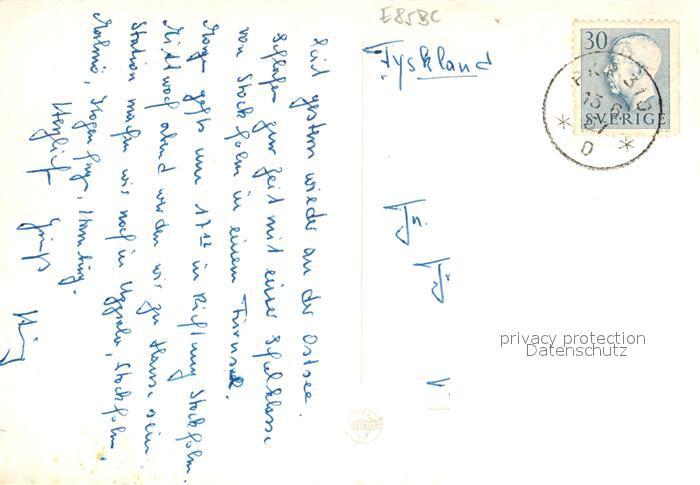 E85BC
Seit gestern wieder an der Ostsee.
Schlafen zur Zeit mit einer Schulklasse
von Stockholm in einem Turnsaal.
Morgen geht's um 17 in Richtung Stockholm.
Mittwoch abend werden wir zu Hause sein.
Station machen wir noch in Uppsala, Stockholm,
Malmö, Hamburg.
Herzliche Grüße
Tyskland
30
SVERIGE
13 6
D
privacy protection
Datenschutz